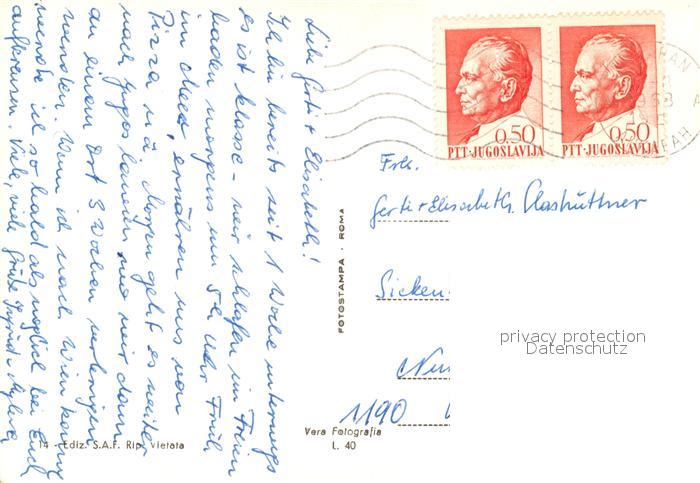 Liebe Gerti + Elisabeth!
Ich bin bereits seit 1 Woche unterwegs
es ist klasse - wir schlafen im Freien
baden morgens um 5h Uhr Früh
im Meer, ernähren uns von
Pizza u.ä. Morgen geht es weiter
nach Jugoslawien, wo wir dann
an einem Ort 3 Wochen verbringen
werden. Wenn ich nach Wien komme
werde ich so bald als möglich bei Euch
aufkreuzen. Viele, viele Grüße Ingrid
0,50
PTT-JUGOSLAVIJA
0,50
PTT-JUGOSLAVIJA
Frls.
Gerti + Elisabeth
1190
privacy protection
Datenschutz
FOTOSTAMPA - ROMA
Vera Fotografia
L. 40
4 - Ediz. S.A.F. Rip. Vietata